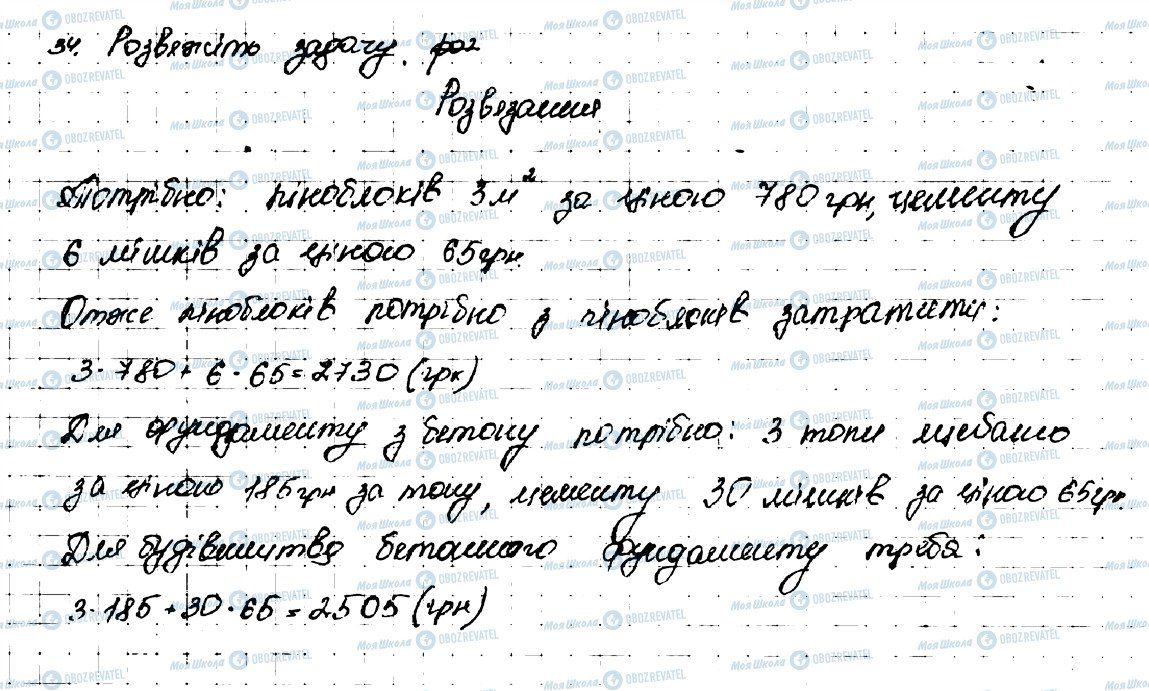 34. Розвяжіть задачу.
Розвязання
Потрібно: піноблоків 3 м² за ціною 780 грн, цементу
6 мішків за ціною 65 грн.
Отже піноблоків потрібно з піноблоків затратити:
3·780 + 6·65 = 2730 (грн)
Для фундаменту з бетону потрібно: 3 тони щебаню
за ціною 185 грн за тону, цементу 30 мішків за ціною 65 грн.
Для будівництва бетонного фундаменту треба:
3·185 + 30·65 = 2505 (грн)